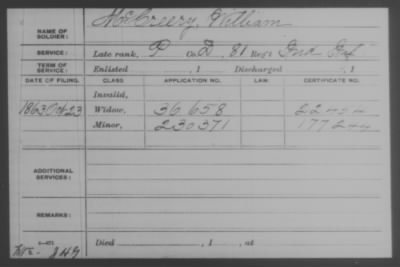 NAME OF SOLDIER: McCreery, William
SERVICE: Late rank, P Co. D, 81 Reg't Ind Inf
TERM OF SERVICE: Enlisted , 1 Discharged , 1
DATE OF FILING. CLASS APPLICATION NO. LAW. CERTIFICATE NO.
Invalid,
1863 Oct 23 Widow, 36 658
Minor, 230371 177244
ADDITIONAL SERVICES:
REMARKS:
Died , 1 , at